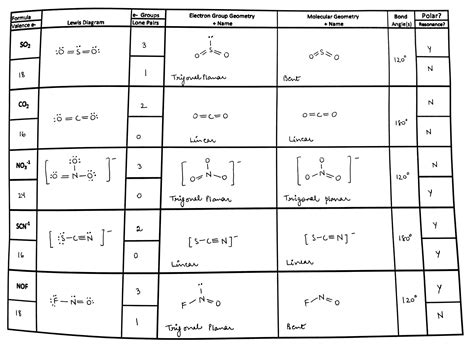 Formula
Valence e-
Lewis Diagram
e- Groups
Lone Pairs
Electron Group Geometry
+ Name
Molecular Geometry
+ Name
Bond
Angle(s)
Polar?
Resonance?
SO₂
18
:Ö = S = Ö:
3
1
O=S=O
Trigonal Planar
O=S=O
Bent
120°
Y
N
CO₂
16
:Ö = C = Ö:
2
0
O=C=O
Linear
O=C=O
Linear
180°
N
N
NO₃⁻¹
24
[:Ö = N - Ö:]⁻
:Ö:
3
0
[O=N-O]⁻
O
Trigonal Planar
[O=N-O]⁻
O
Trigonal planar
120°
N
Y
SCN⁻¹
16
[:S-C≡N]⁻
2
0
[S-C≡N]⁻
Linear
[S-C≡N]⁻
Linear
180°
Y
Y
NOF
18
:F - N = Ö:
3
1
F-N=O
Trigonal Planar
F-N=O
Bent
120°
Y
N